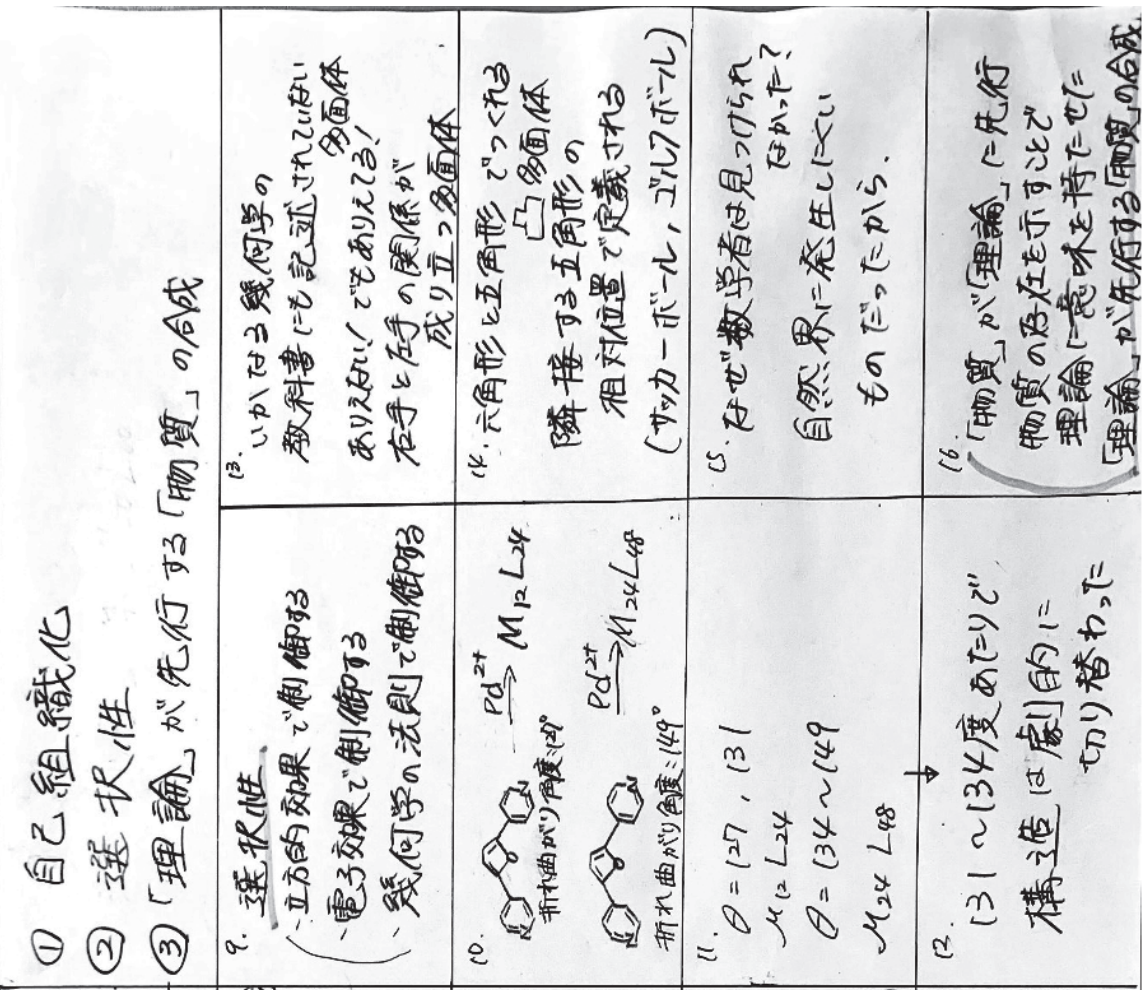 ① 自己組織化
② 選択性
③「理論」が先行する「物質」の合成
9. 選択性
・立方的効果で制御する
・電子効果で制御する
・幾何学の法則で制御する
10.
Pd²⁺
M₁₂L₂₄
折れ曲がり角度:127°
Pd²⁺
M₂₄L₄₈
折れ曲がり角度:149°
11.
θ=127, 131
M₁₂L₂₄
θ=134〜149
M₂₄L₄₈
12.
131〜134度あたりで
構造は劇的に
切り替わった
13.
いかなる幾何学の
教科書にも記述されていない
多面体
ありえない!でもありえてる!
右手と左手の関係が
成り立つ多面体
14. 六角形と五角形でつくれる
凸多面体
隣接する五角形の
相対位置で定義される
(サッカーボール, ゴルフボール)
15. なぜ数学者は見つけられ
なかった?
自然界に発生しにくい
ものだったから.
16.
「物質」が「理論」に先行
物質の存在を示すことで
理論に意味を持たせた
「理論」が先行する「物質」の合成